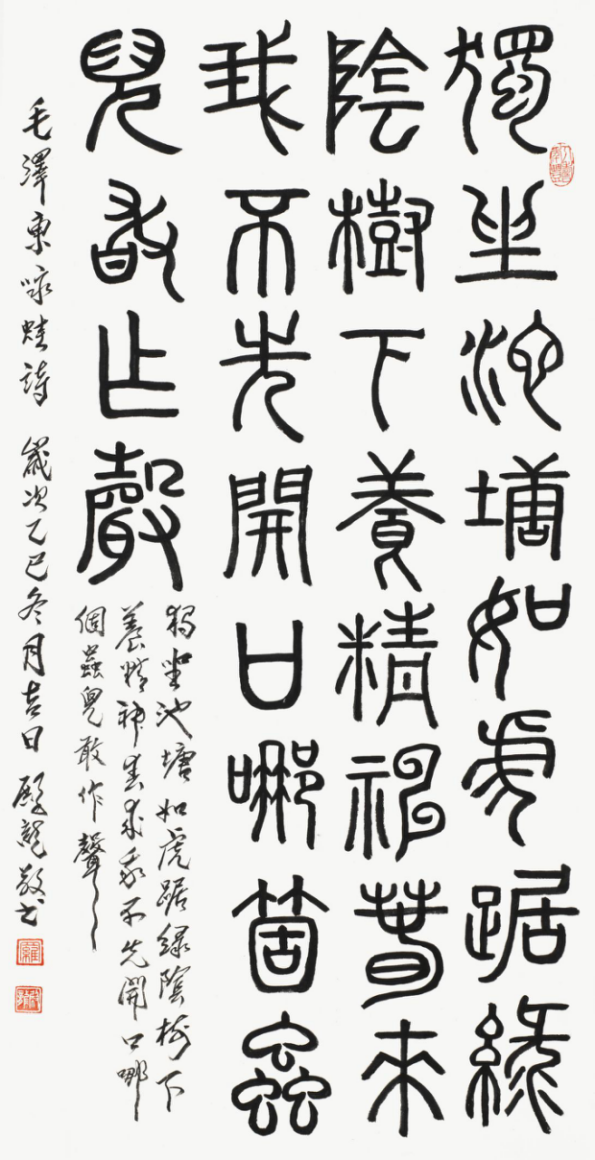 獨坐池塘如虎踞綠
陰樹下養精神春來
我不先開口哪箇蟲
兒敢作聲
獨坐池塘如虎踞綠陰樹下
養精神春來我不先開口哪
個蟲兒敢作聲
毛澤東咏蛙詩 歲次乙巳冬月吉日 龍敬书